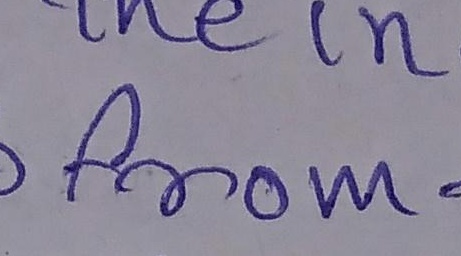 the in
from